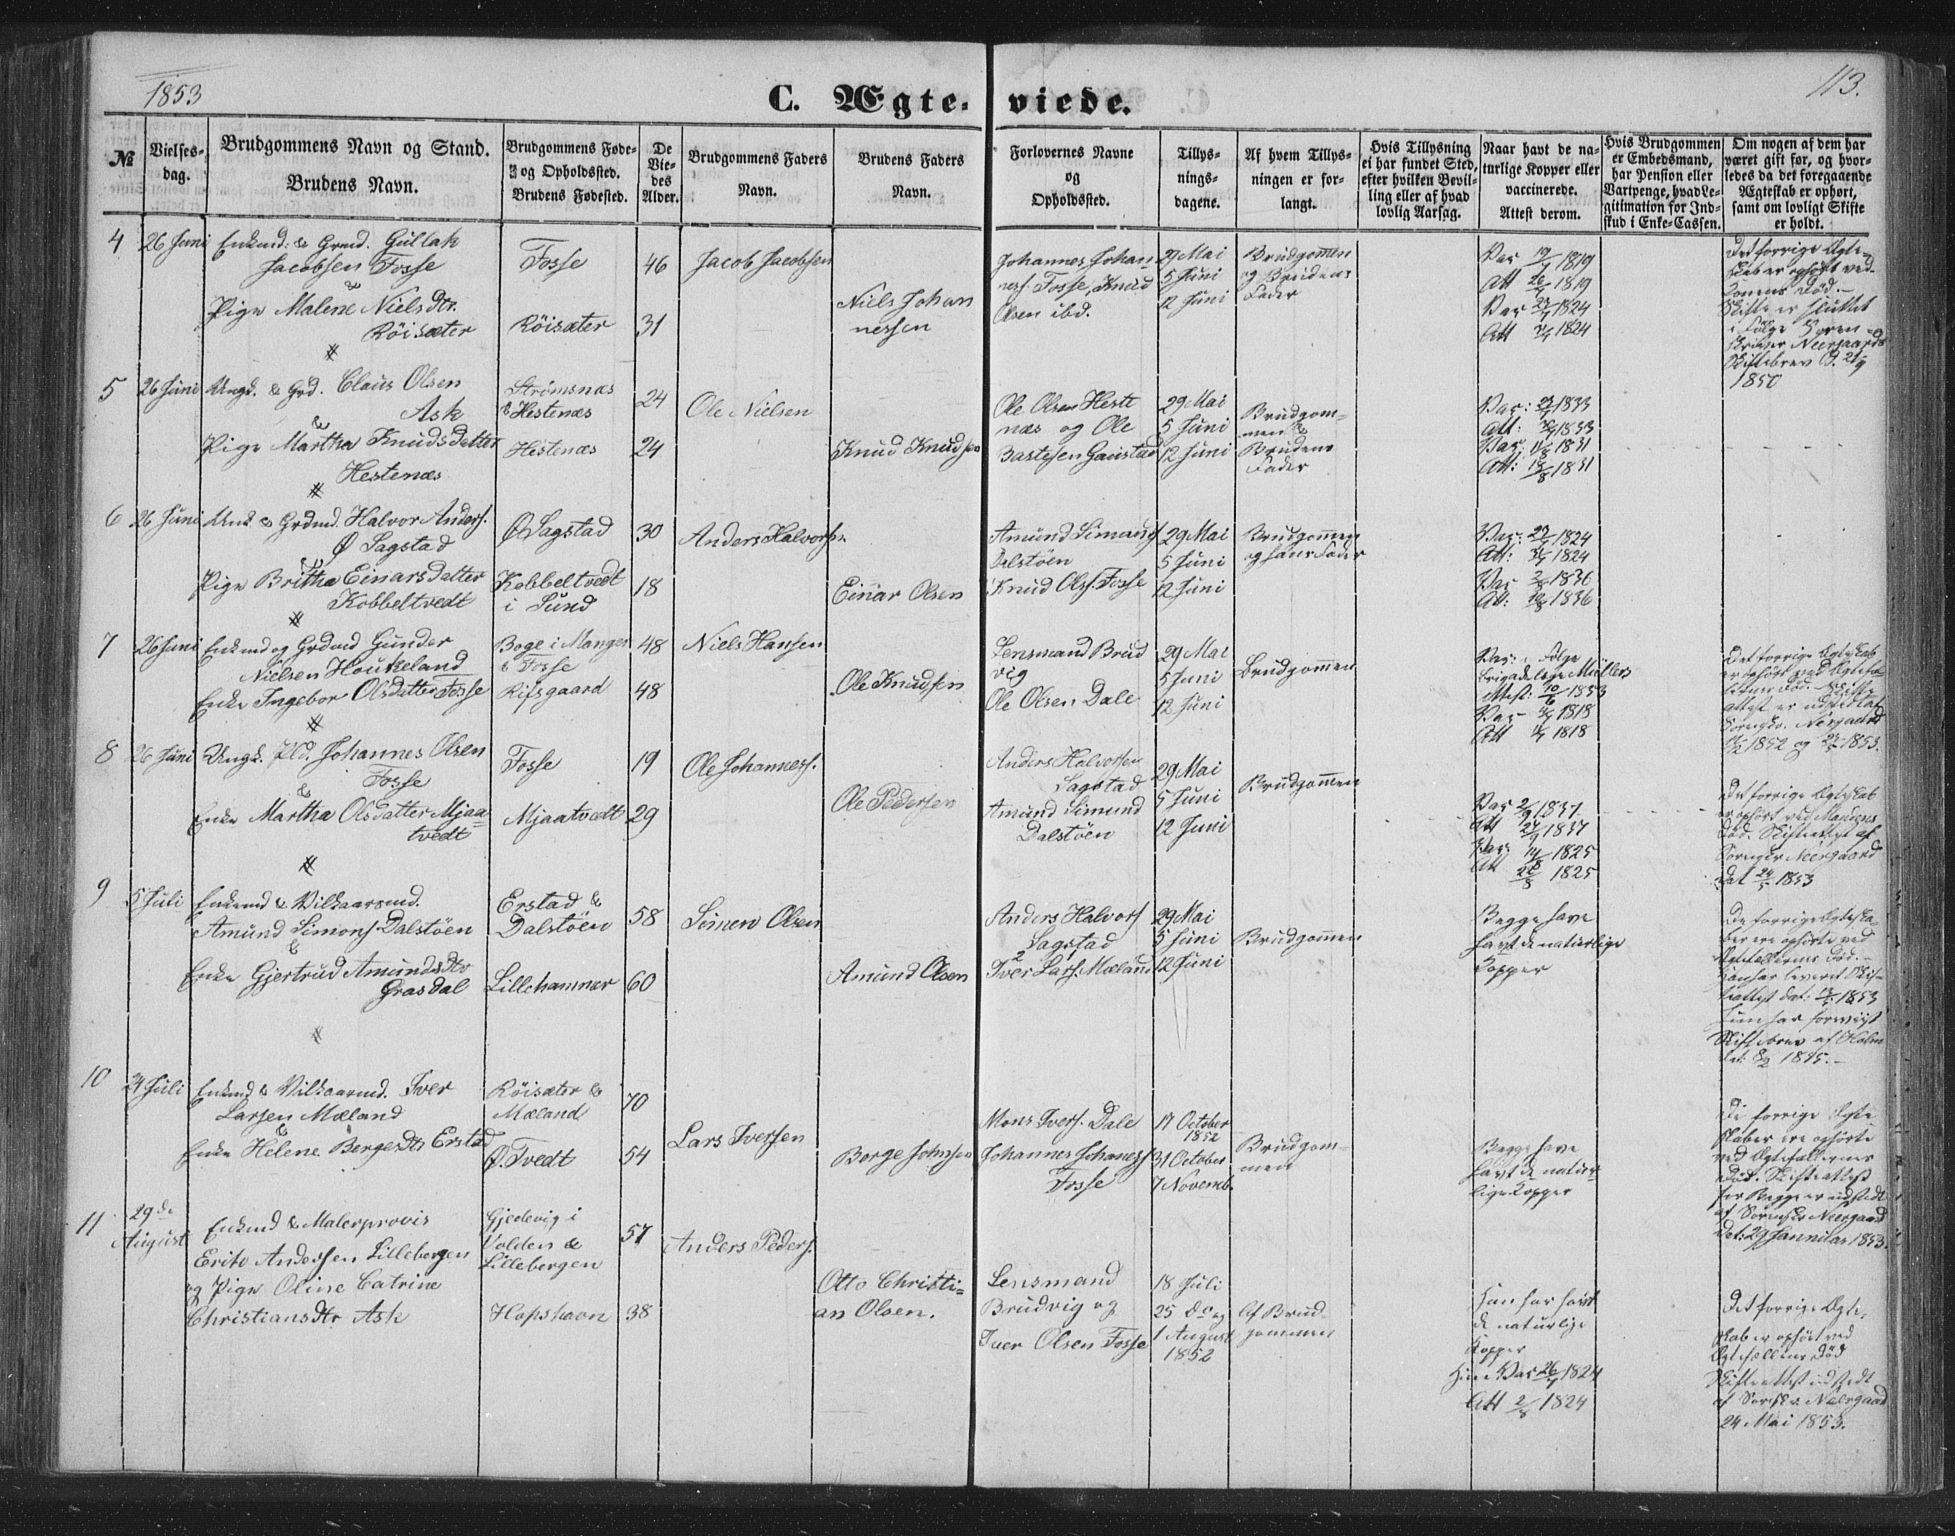 1853
113.
C. Ægte-viede.
№
Vielses-dag.
Brudgommens Navn og Stand.
Brudens Navn.
Brudgommens Føde- og Opholdssted.
Brudens Fødested.
De Vie-des Alder.
Brudgommens Faders Navn.
Brudens Faders Navn.
Forlovernes Navne og Opholdssted.
Tillys-nings-dagene.
Af hvem Tillys-ningen er for-langt.
Hvis Tillysning ei har fundet Sted, efter hvilken Bevil-ling eller af hvad lovlig Aarsag.
Naar havt de na-turlige Kopper eller vaccinerede.
Attest derom.
Hvis Brudgommen er Embedsmand, har Pension eller Vartpenge, hvad Le-gitimation for Ind-skud i Enke-Cassen.
Om nogen af dem har været gift før, og hvor-ledes da det foregaaende Ægteskab er ophørt, samt om lovligt Skifte er holdt.
4
26 Juni
Enkmd: & Grmd. Gullak
Jacobsen Fosse
&
Pige Malene Nielsdtr.
Röisæter
Fosse
Röisæter
46
31
Jacob Jacobsen
Niels Johan
nessen
Johannes Johan-
nesf Fosse, Knud
Olsen ibd.
29 Mai
5 Juni
12 Juni
Brudgommen
og Brudens
Fader
Vac 19/7 1819
Att 26/7 1819
Vac 1824
Att 1824
Det forrige Ægte-
skab er ophørt ved
Konens Død.-
Skifte er sluttet
i Følge Soren-
skriver Neergaards
Skiftebrev
1850
5
26 Juni
Ungk. & Grd. Claus Olsen
Ask
&
Pige Martha Knudsdatter
Hestenæs
Strømsnæs
& Hestenæs
Hestenæs
24
24
Ole Nielsen
Knud Knudsen
Ole Olsen Heste
næs og Ole
Bastesen Gaustad
29 Mai
5 Juni
12 Juni
Brudgom-
men &
Brudens
Fader
Vac: 1833
Att: 1833
Vac: 11/8 1831
Att: 18/8 1831
6
26 Juni
Unk & Grdmd. Halvor Anders.
Ø Sagstad
&
Pige Britha Einarsdatter
Kobbeltvedt
Ø Sagstad
Kobbeltvedt
i Sund
30
18
Anders Halvorsen
Einar Olsen
Amund Simonsf
Dalstøen
Knud Olsf. Fosse
29 Mai
5 Juni
12 Juni
Brudgommen
og hans Fader
Vac: 1824
Att: 1824
Vac 1836
Att: 1836
7
26 Juni
Enkmd og Grdmd Gunder
Nielsen Haukeland
Enke Ingebor Olsdatter Fosse
Boge i Manger
& Fosse
Risgaard
48
48
Niels Hansen
Ole Knudsen
Lensmand Brud
vig
Ole Olsen Dale
29 Mai
5 Juni
12 Juni
Brudgommen
Vac: i Følge
Brigadelæge Müllers
Attest: 10/6 1853
Vac 1818
Att 1818
Det forrige Ægteskab
er ophørt ved Ægtefæ
Skifte
attest er udstedt af
Sorenskr. Neergaard
1852 og 1853.
8
26 Juni
Ungk. Johannes Olsen
Fosse
&
Enke Martha Olsdatter Mjaa-
tvedt
Fosse
Mjaatvedt
19
29
Ole Johannesf.
Ole Pedersen
Anders Halvorsen
Sagstad
Amund Simund
Dalstøen
29 Mai
5 Juni
12 Juni
Brudgommen
Vac 2/9 1837
Att 1837
Vac 14/8 1825
Att 22/8 1825
Det forrige Ægteskab
er ophørt ved Mandens
Død. Skifteattest af
Sorenskr Neergaard
dat 24/5 1853
9
5 Juli
Enkemd & Vilkaarsmd.
Amund Simonf. Dalstöen
&
Enke Gjertrud Amundsdtr
Grasdal
Erstad &
Dalstöen
Lillehammer
58
60
Simen Olsen
Amund Olsen
Anders Halvorsf
Sagstad
Iver Larsf. Mæland
29 Mai
5 Juni
12 Juni
Brudgommen
Begge have
havt de naturlige
Kopper
De forrige Ægteska
ber ere ophørte ved
Ægtefællernes Død.-
Han har leveret Skif-
teattest dat: 1853
Hun har forevist
Skiftebrev af Holm
dat: 8/2 1845.-
10
24 Juli
Enkmd & Vilkaarmd. Iver
Larsen Mæland
&
Enke Helene Borgesdtr Erstad
Röisæter &
Mæland
Ø. Tvedt
70
54
Lars Iversen
Borge Johnsen
Mons Iversf. Dale
Johannes Johanesf
Fosse
17 October
1852
31 October
7 Novemb.
Brudgom-
men
Begge have
havt de natur
lige Kopper
De forrige Ægte
skaber ere ophørte
ved Ægtefællernes
Død. Skifteattest
for Begge er udstedt
af Sorenskr Neergaard
dat: 29 Januar 1853.
11
29de
August
Enkmd & Malerprovis
Erik Andersen Lillebergen
og Pige Oline Catrine
Christiansdtr Ask
Gjedevig i
Volden &
Lillebergen
Hopshavn
57
38
Anders Peders.
Otto Christi-
an Olsen.
Lensmand
Brudvig og
Iver Olsen Fosse
18 Juli
25 Do og
1 August
1852
Af Brud-
gommen
Han har havt
de naturlige
Kopper
Hun Vac 26/7 1824
Att 2/8 1824
Det forrige Ægte-
skab er ophørt ved
Ægtefællens Død
Skifteattest udstedt
af Sorskr. Neergaard
24 Mai 1853.